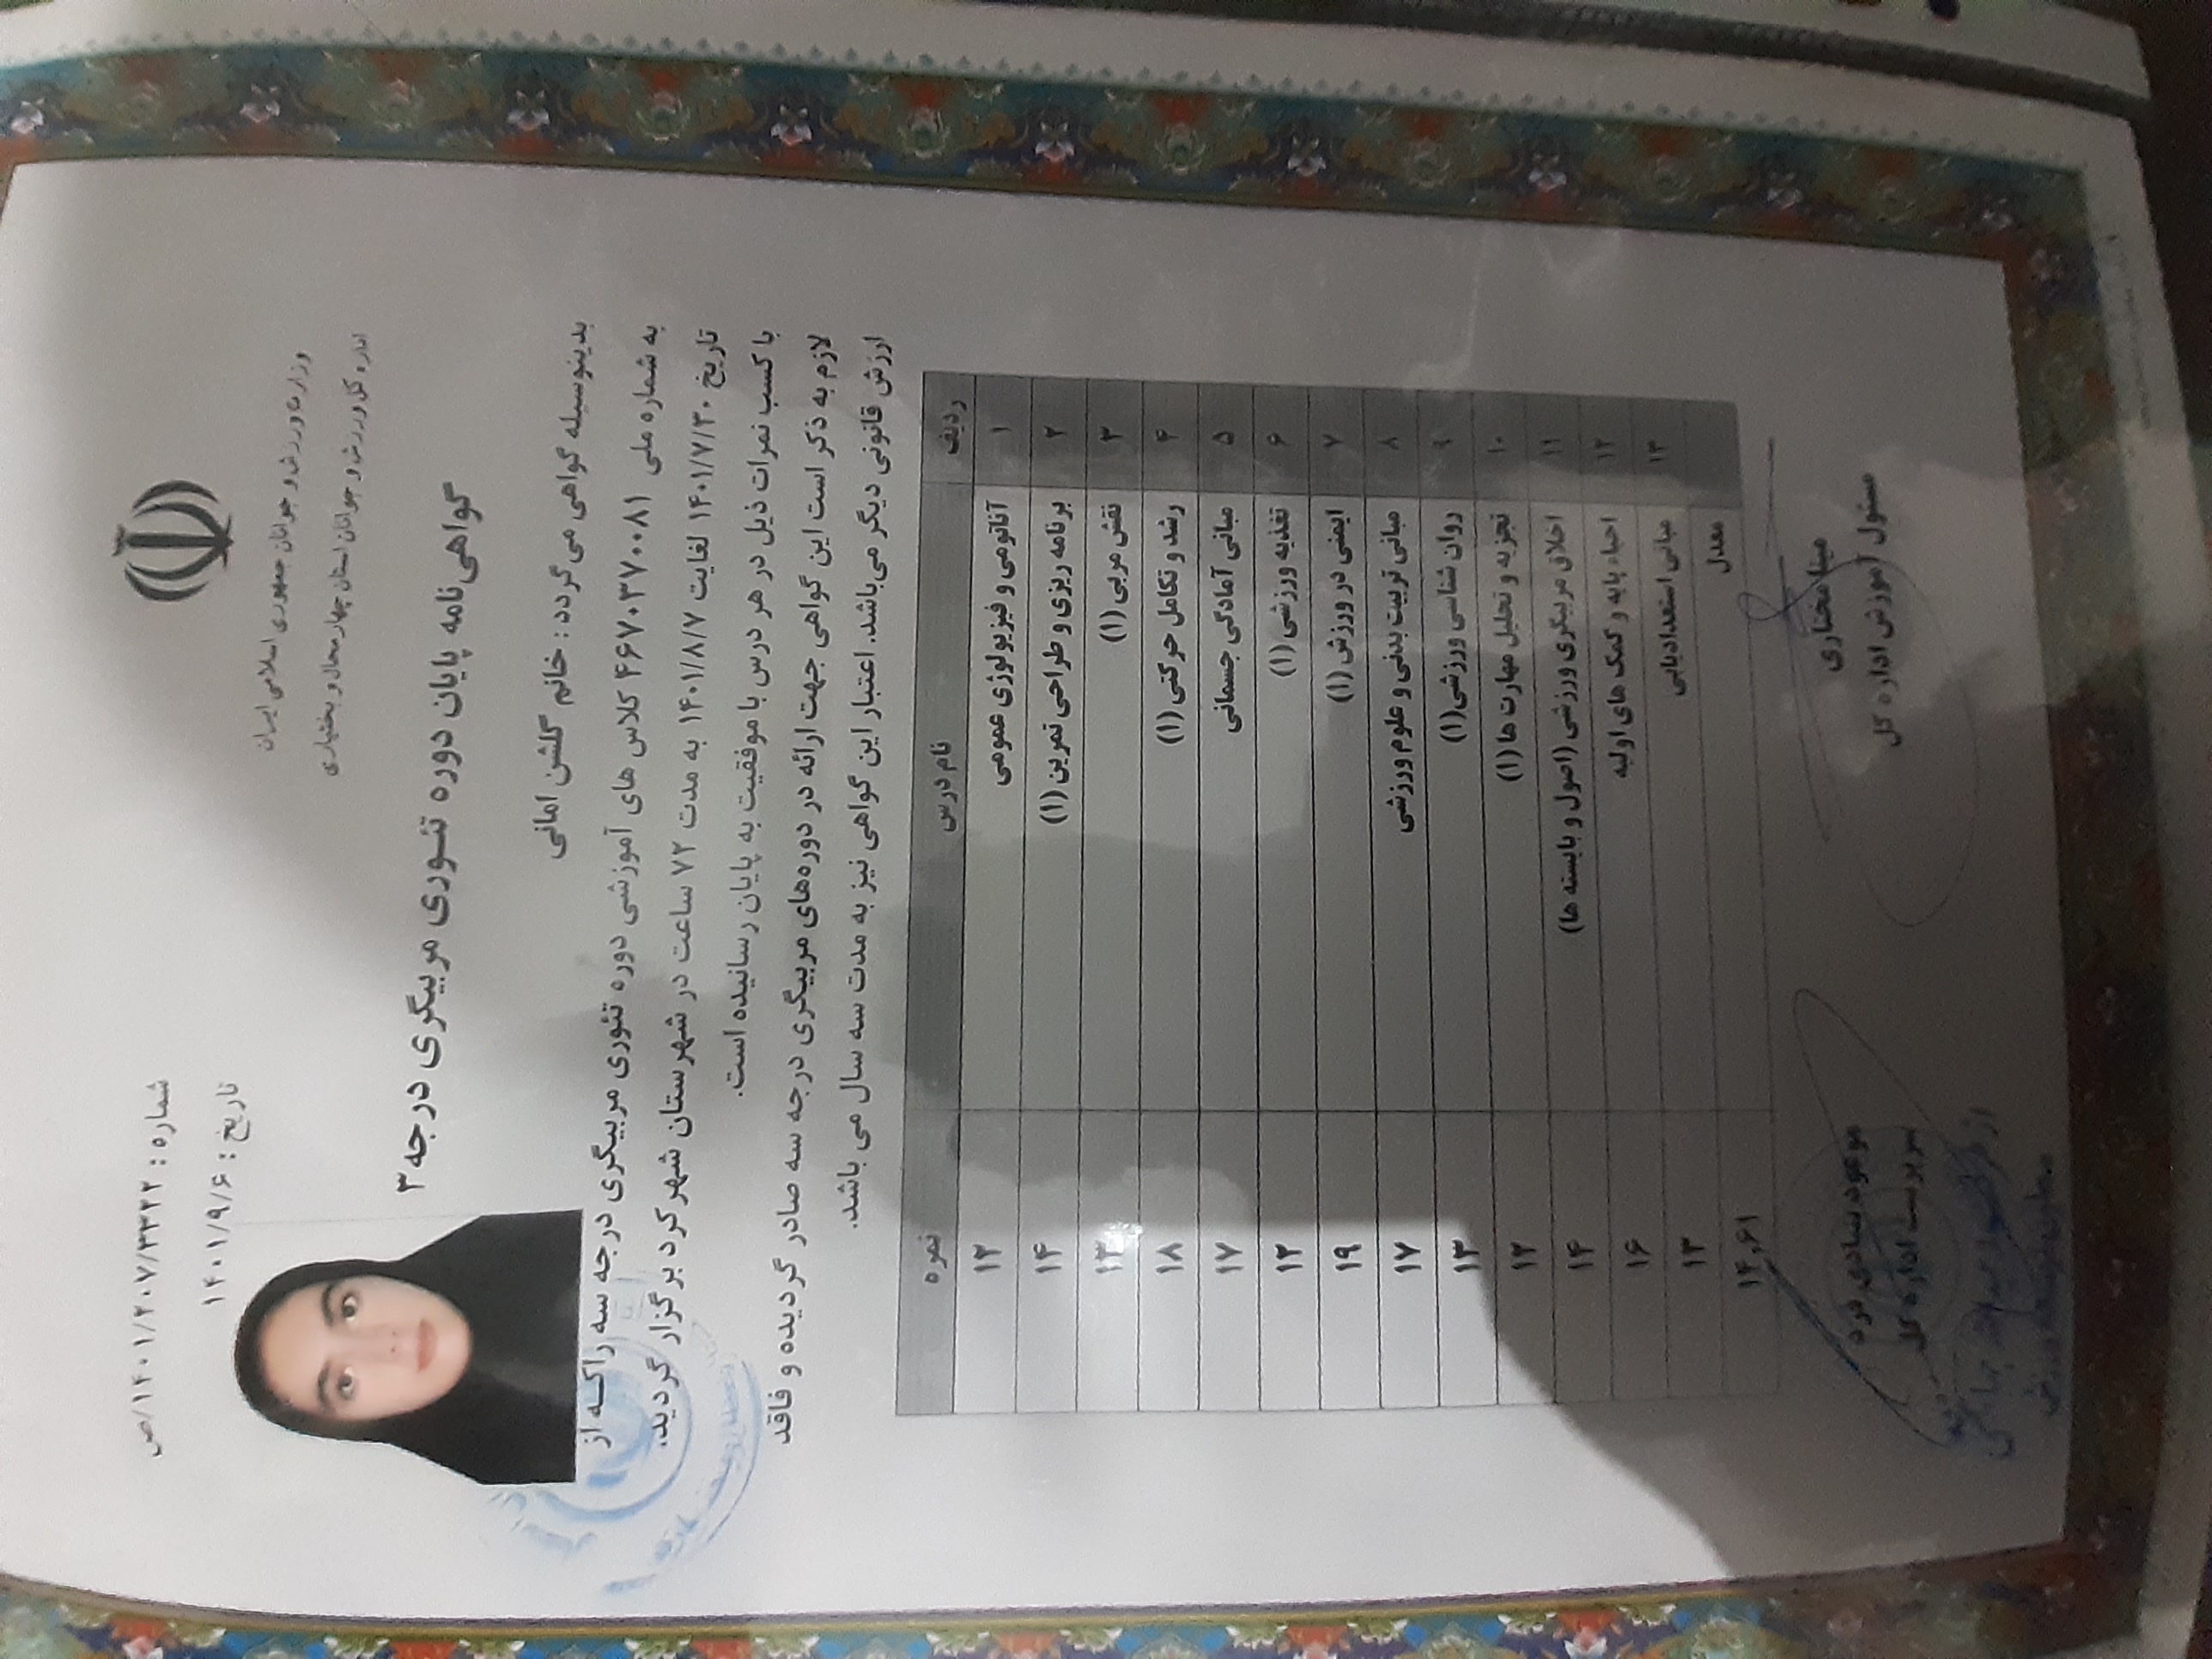 شماره : ۱۴۰۱/۲۰۷/۳۳۲۲/ص
تاریخ : ۱۴۰۱/۹/۶
وزارت ورزش و جوانان جمهوری اسلامی ایران
اداره کل ورزش و جوانان استان چهارمحال و بختیاری
گواهی نامه پایان دوره تئوری مربیگری درجه ۳
بدینوسیله گواهی می گردد : خانم گلشن امانی
به شماره ملی ۴۶۷۰۳۷۰۰۸۱ کلاس های آموزشی دوره تئوری مربیگری درجه سه را که از
تاریخ ۱۴۰۱/۷/۳۰ لغایت ۱۴۰۱/۸/۷ به مدت ۷۲ ساعت در شهرستان شهرکرد برگزار گردید.
با کسب نمرات ذیل در هر درس با موفقیت به پایان رسانیده است.
لازم به ذکر است این گواهی جهت ارائه در دوره‌های مربیگری درجه سه صادر گردیده و فاقد
ارزش قانونی دیگر می‌باشد. اعتبار این گواهی نیز به مدت سه سال می باشد.
ردیف نام درس نمره
۱ آناتومی و فیزیولوژی عمومی ۱۲
۲ برنامه ریزی و طراحی تمرین (۱) ۱۴
۳ نقش مربی (۱) ۱۳
۴ رشد و تکامل حرکتی (۱) ۱۸
۵ مبانی آمادگی جسمانی ۱۷
۶ تغذیه ورزشی (۱) ۱۲
۷ ایمنی در ورزش (۱) ۱۹
۸ مبانی تربیت بدنی و علوم ورزشی ۱۷
۹ روان شناسی ورزشی(۱) ۱۳
۱۰ تجزیه و تحلیل مهارت ها (۱) ۱۲
۱۱ اخلاق مربیگری ورزشی (اصول و بایسته ها) ۱۴
۱۲ احیاء پایه و کمک های اولیه ۱۶
۱۳ مبانی استعدادیابی ۱۳
معدل ۱۴.۶۱
مینا مختاری
مسئول آموزش اداره کل
سرپرست اداره کل